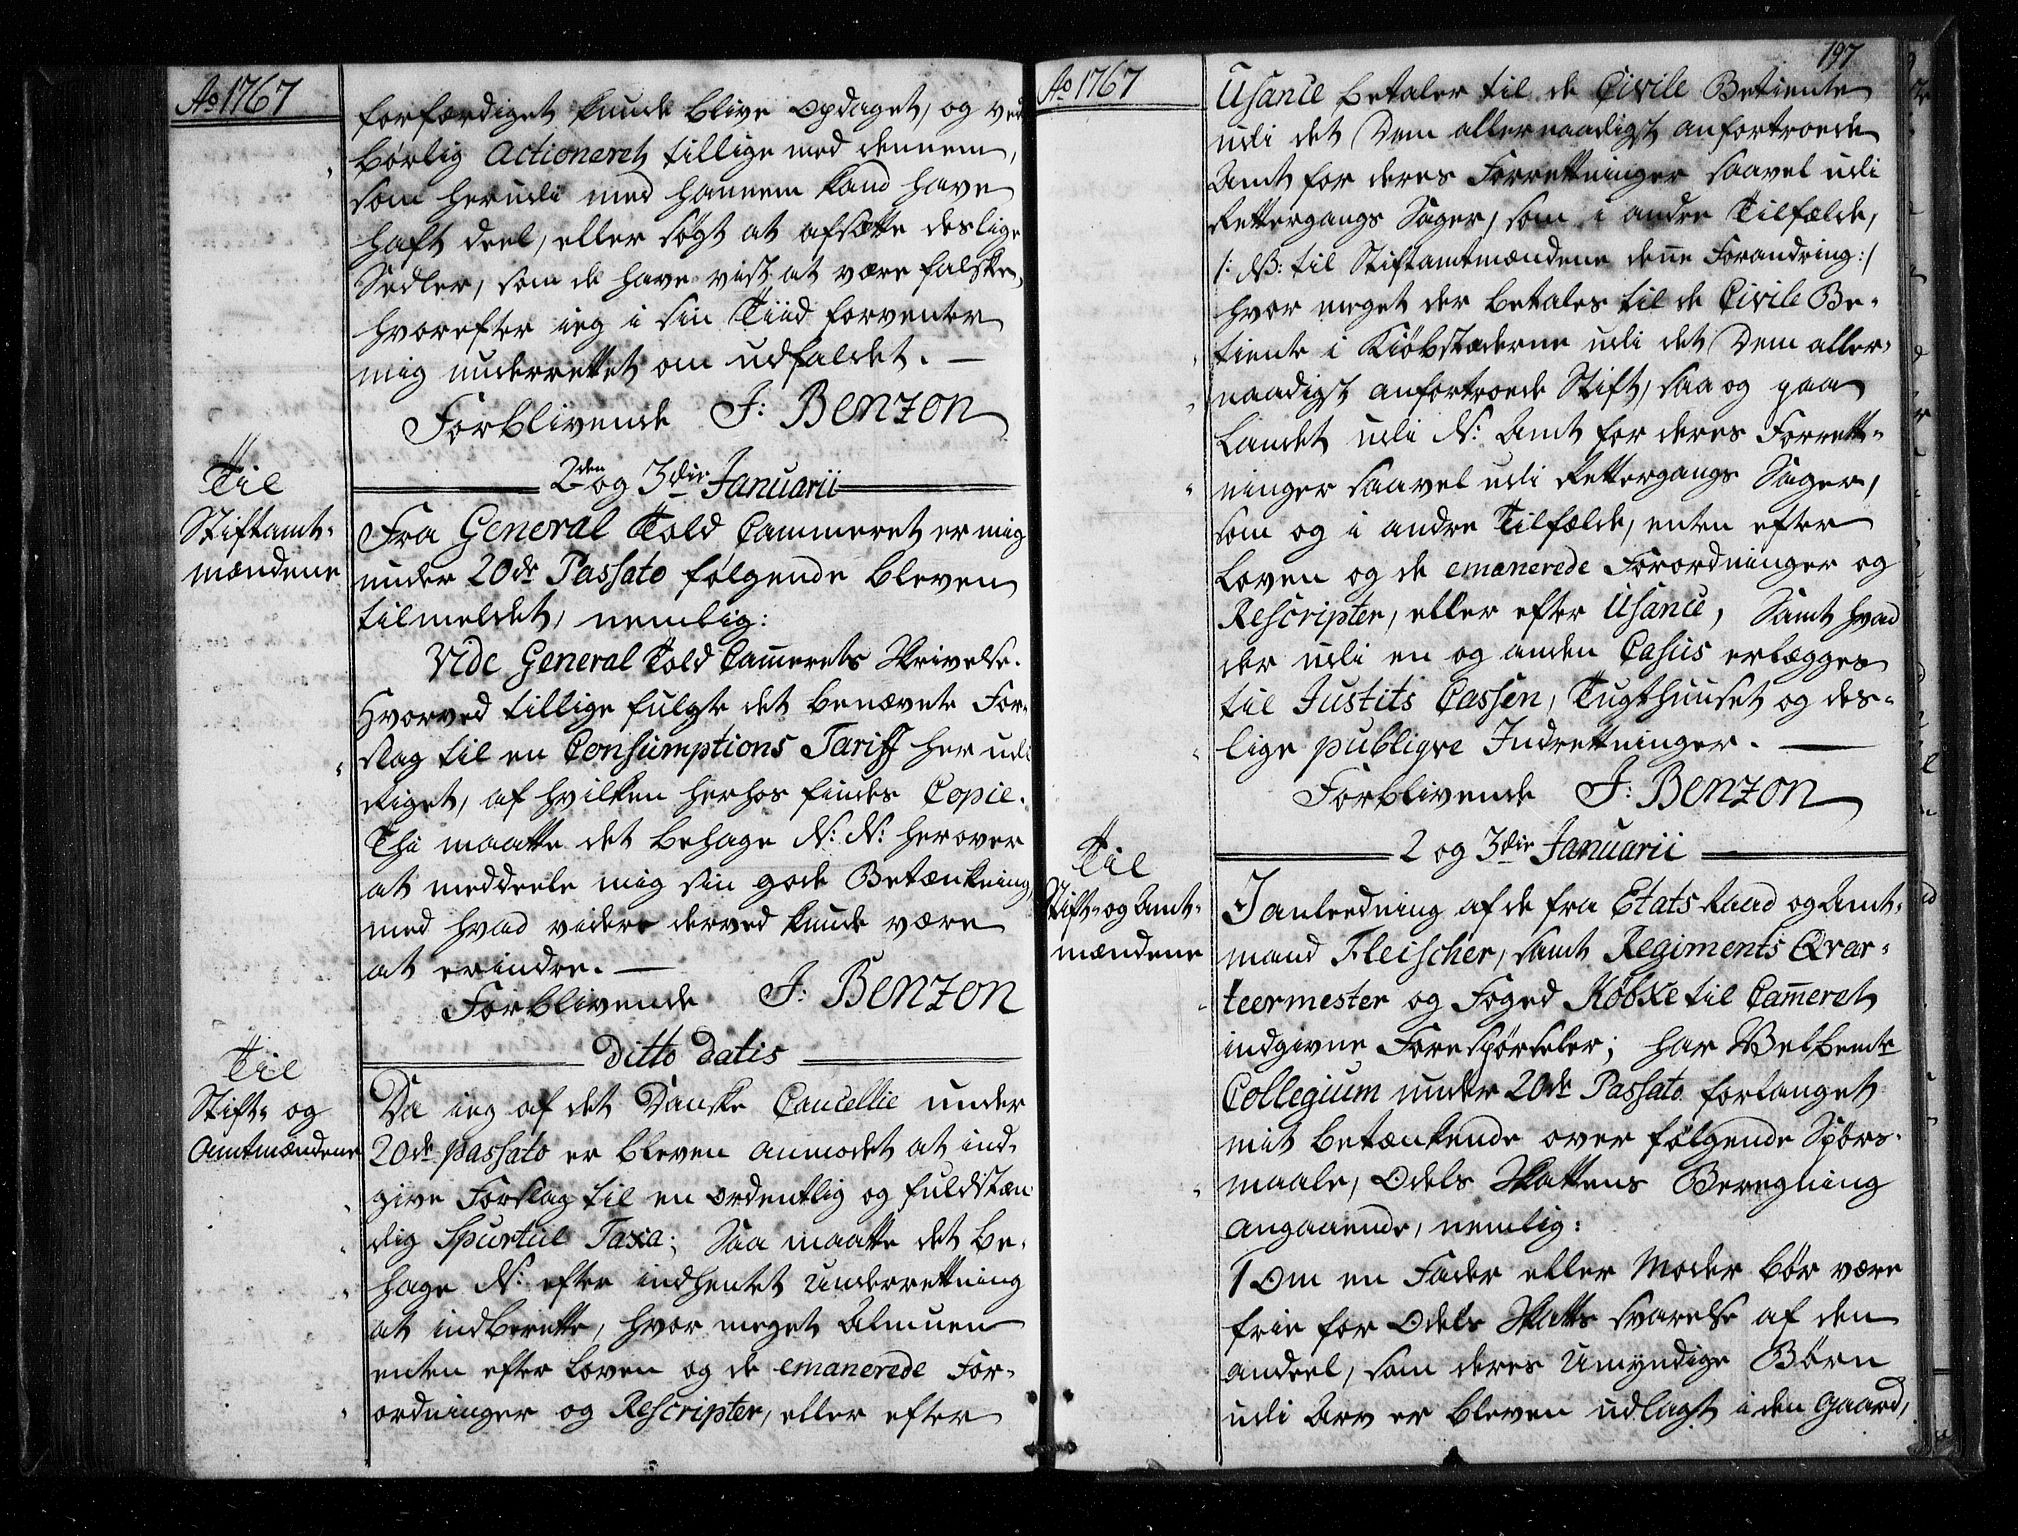 Ao 1767
forfærdiget kunde blive Opdaget, og ved
börlig Actioneret tillige med dennem,
som herudi med hannem kand have
haft deel, eller søgt at afsætte deslige
Sedler, som de have vist at være falske,
hvorefter ieg i sin Tiid forventer
mig underrettet om udfaldet. —
Forblivende J: Benzon
2den og 3die Januarii
Til
Stiftamt-
mændene
Fra General Told Cammeret er mig
under 20de Passato følgende bleven
tilmeldet, nemlig:
Vide General Told Camerets Skrivelse.
Hvorved tillige fulgte det benævnte For-
slag til en Consumptions Tariff her udi
Riget, af hvilken herhos findes Copie.
Thi maatte det behage N: N: herover
at meddeele mig sin gode Betænkning,
med hvad videre derved kunde være
at erindre. —
Forblivende J: Benzon
Ditto Datis
Til
Stift- og
Amtmændene
Da ieg af det Danske Cancellie under
20de passato er bleven anmodet at ind-
give Forslag til en ordentlig og fuldstæn-
dig Spurtul Taxa; Saa maatte det be-
hage N: efter indhentet Underrettning
at indberette, hvor meget Almuen
enten efter Loven og de emanerede For-
ordninger og Rescripter, eller efter
197
Ao 1767
Usance betaler til de Civile Betiente
udi det Dem allernaadigst anfortroede
Amt for deres Forrettninger saavel udi
Rettergangs Sager, som i andre Tilfælde,
/: NB: til Stiftamtmændene denne Forandring:/
hvor meget der betales til de Civile Be-
tiente i Kiøbstæderne udi det Dem aller-
naadigst anfortroede Stift, saa og paa
Landet udi N: Amt for deres Forrett-
ninger saavel udi Rettergangs Sager,
som og i andre Tilfælde, enten efter
Loven og de emanerede Forordninger og
Rescripter, eller efter Usance, Samt hvad
der udi en og anden Casus erlægges
til Justits Cassen, Tugthuuset og des-
lige publiqve Indrettninger. —
Forblivende J: Benzon
2 og 3die Januarii
Til
Stift- og Amt-
mændene
I anleedning af de fra Etats Raad og Amt-
mand Fleischer, samt Regiments Qvar-
teermester og Foged Röbxe til Cameret
indgivne Forespörseler; har Velbemte
Collegium under 20de Passato forlanget
mit betænkende over følgende Spörs-
maale, Odels Skattens Beregning
angaaende, nemlig:
1 Om en Fader eller Moder bör være
frie for Odels Skatts svarelse af den
andeel, som deres Umyndige Börn
udi Arv er bleven udlagt i den Gaard,